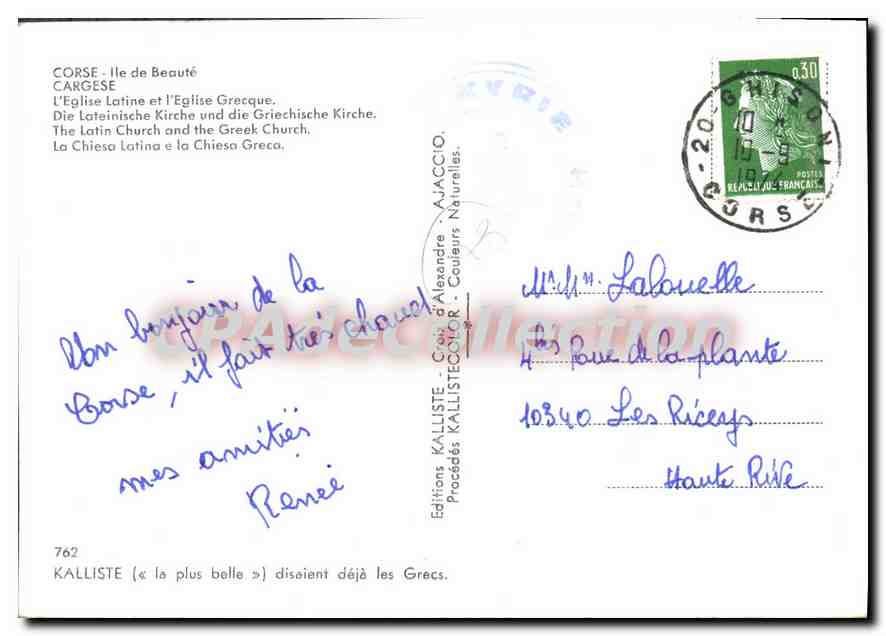 CORSE - Ile de Beauté
CARGESE
L'Eglise Latine et l'Eglise Grecque.
Die Lateinische Kirche und die Griechische Kirche.
The Latin Church and the Greek Church.
La Chiesa Latina e la Chiesa Greca.
Un bonjour de la
Corse, il fait très chaud
mes amitiés
Renée
762
KALLISTE (« la plus belle ») disaient déjà les Grecs.
Editions KALLISTE - Croix d'Alexandre - AJACCIO.
Procédés KALLISTECOLOR - Couleurs Naturelles.
CPAdecollection
0,30
POSTES
REPUBLIQUE FRANÇAISE
20 - GHISONI
10 -9
1974
CORSE
Mr Mme Lalouelle
4bis Rue de la plante
10340 Les Riceys
Haute Rive